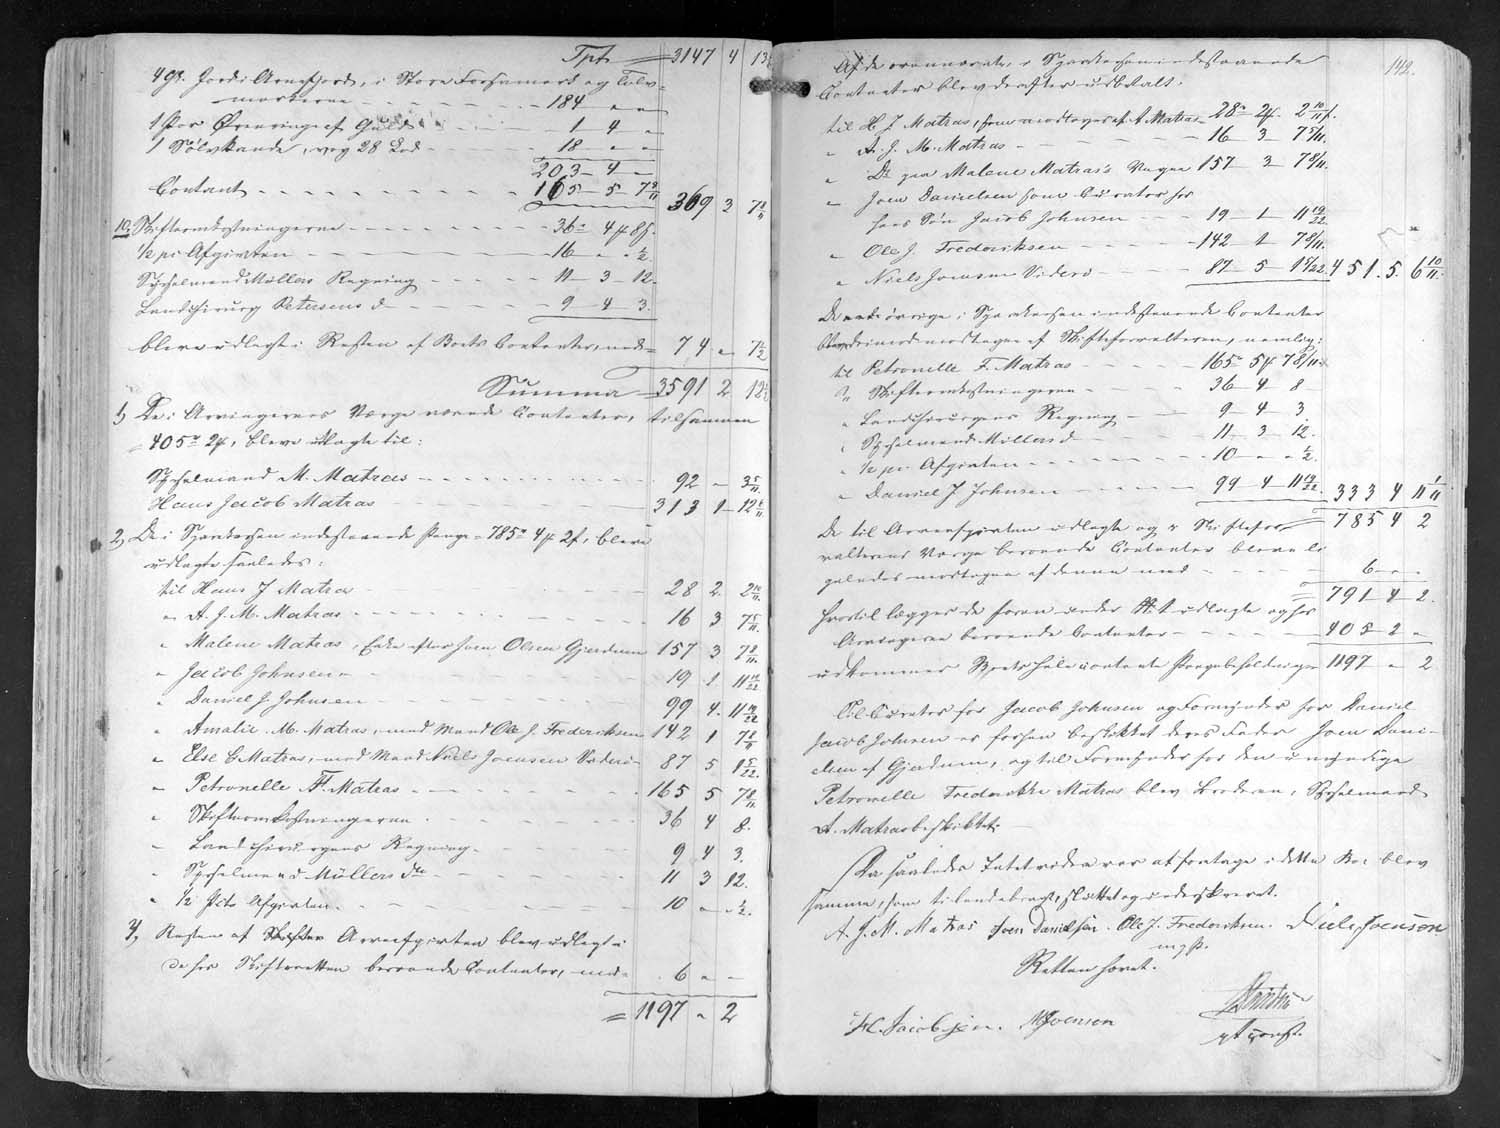 Tpt. 3147 4 13
4 Gl. Jord i Arnefjord, i Store Forsamord og Tølv-
markerne 184 " "
1 Par Ørenringe af Guld 1 4 "
1 Sølvkande, vog 28 Lod 18 " "
203 - 4 -
Contant 165 - 5 - 7 8/11 369 3 7 8/11
10, Skifteomkostningerne 36 - 4 # 8 ß.
1/2 pr. Afgivten 16 " " 1/2.
Sysselmand Müllers Regning 11 - 3 - 12.
Landchirurg Petersens d 9 - 4 - 3.
bleve udlagt i Resten af Boets Contanter, med 74 " 7 1/2
Summa 3591 2 12
1, De i Arvingernes Værge værende Contanter, tilsammen
405 2 #, bleve udlagte til:
Sysselmand M. Matras 92 - 3 5/11.
Hans Jacob Matras 313 1 - 12 6/11.
2, De i Sparekassen indestaaende Penge = 785 4 # 2 ß, bleve
udlagte saaledes:
til Hans J Matras 28 2. 2 10/11.
" A. J. M. Matras 16 3 7 5/11.
" Malene Matras, Enke efter Joen Olsen Gjerdum 157 3 7 8/11.
" Jacob Johnsen 19 1 11 19/22
" Daniel J. Johnsen 99 4. 11 19/22
" Amalie. M. Matras, med Mand Ole J. Frederiksen 142 1 7 8/11
" Else C Matras, med Mand Niels Joensen Viderö 87 5 1 5/22.
" Petronelle F. Matras 165 5 7 8/11
" Skifteomkostningerne 36 4 8.
" Landchirurgens Regning 9 4 3.
" Sysselmand Müllers do 11 3 12.
" 1/2 pCts Afgivten. 10 " 1/2.
3, Resten af Arveafgivten blev udlagt i
de hos Skifteretten beroende Contanter, med 6 " -
= 1197 " 2
142.
Af de ovennævnte, i Sparekassen indestaaende
Contanter blev derefter udbetalt:
til H J Matras, som modtoges af A Matras 28 - 2 #. 2 10/11 ß.
" A. J. M. Matras 16 - 3 - 7 5/11.
" De paa Malene Matras's Vegne 157 - 3 - 7 8/11.
" Joen Danielsen som Curator for
hans Søn Jacob Johnsen 19 - 1 11 19/22
" Ole J. Frederiksen 142 - 1 7 8/11.
" Niels Joensen Viderö 87 - 5 - 1 5/22 451. 5. 6 10/11.
De øvrige i Sparekassen indestaaende Contanter
bleve derimod modtagne af Skifteforvalteren, nemlig:
til Petronelle F. Matras 165 - 5 # 7 8/11 ß
" Skifteomkostningerne 36 - 4 - 8 -
" Landchirurgens Regning 9 - 4 - 3.
" Sysselmand Müllers d 11 - 3 - 12.
" 1/2 pr. Afgivten 10 - - 1/2.
" Daniel J Johnsen 99 - 4 11 19/22. 333 4 11 1/11
De til Arveafgivten udlagte og i Skiftefor- 785 4 2
valterens Værge beroende Contanter bleve li-
geledes modtagne af denne med 6 - -
791 - 4 - 2.
Hertil lægges de foran under № 1 udlagte og hos
Arvingerne beroende Contanter 405 - 2 "
udkommer Boets hele contante Pengebeholdning 1197 " 2
Til Curator for Jacob Johnsen og Formynder for Daniel
Jacob Johnsen er forhen beskikket deres Fader Joen Dani-
elsen af Gjerdum, og til Formynder for den umyndige
Petronelle Frederikke Matras blev Broderen, Sysselmand
A. Matras beskikket.
Da saaledes Intet videre var at foretage i dette Bo, blev
samme, som tilendebragt, sluttet og underskrevet.
A. J. M. Matras Joen Danielsen. Ole J. Frederiksen. Niels Joensen
m. f. P.
Retten hævet.
H. Jacobsen. M Joensen